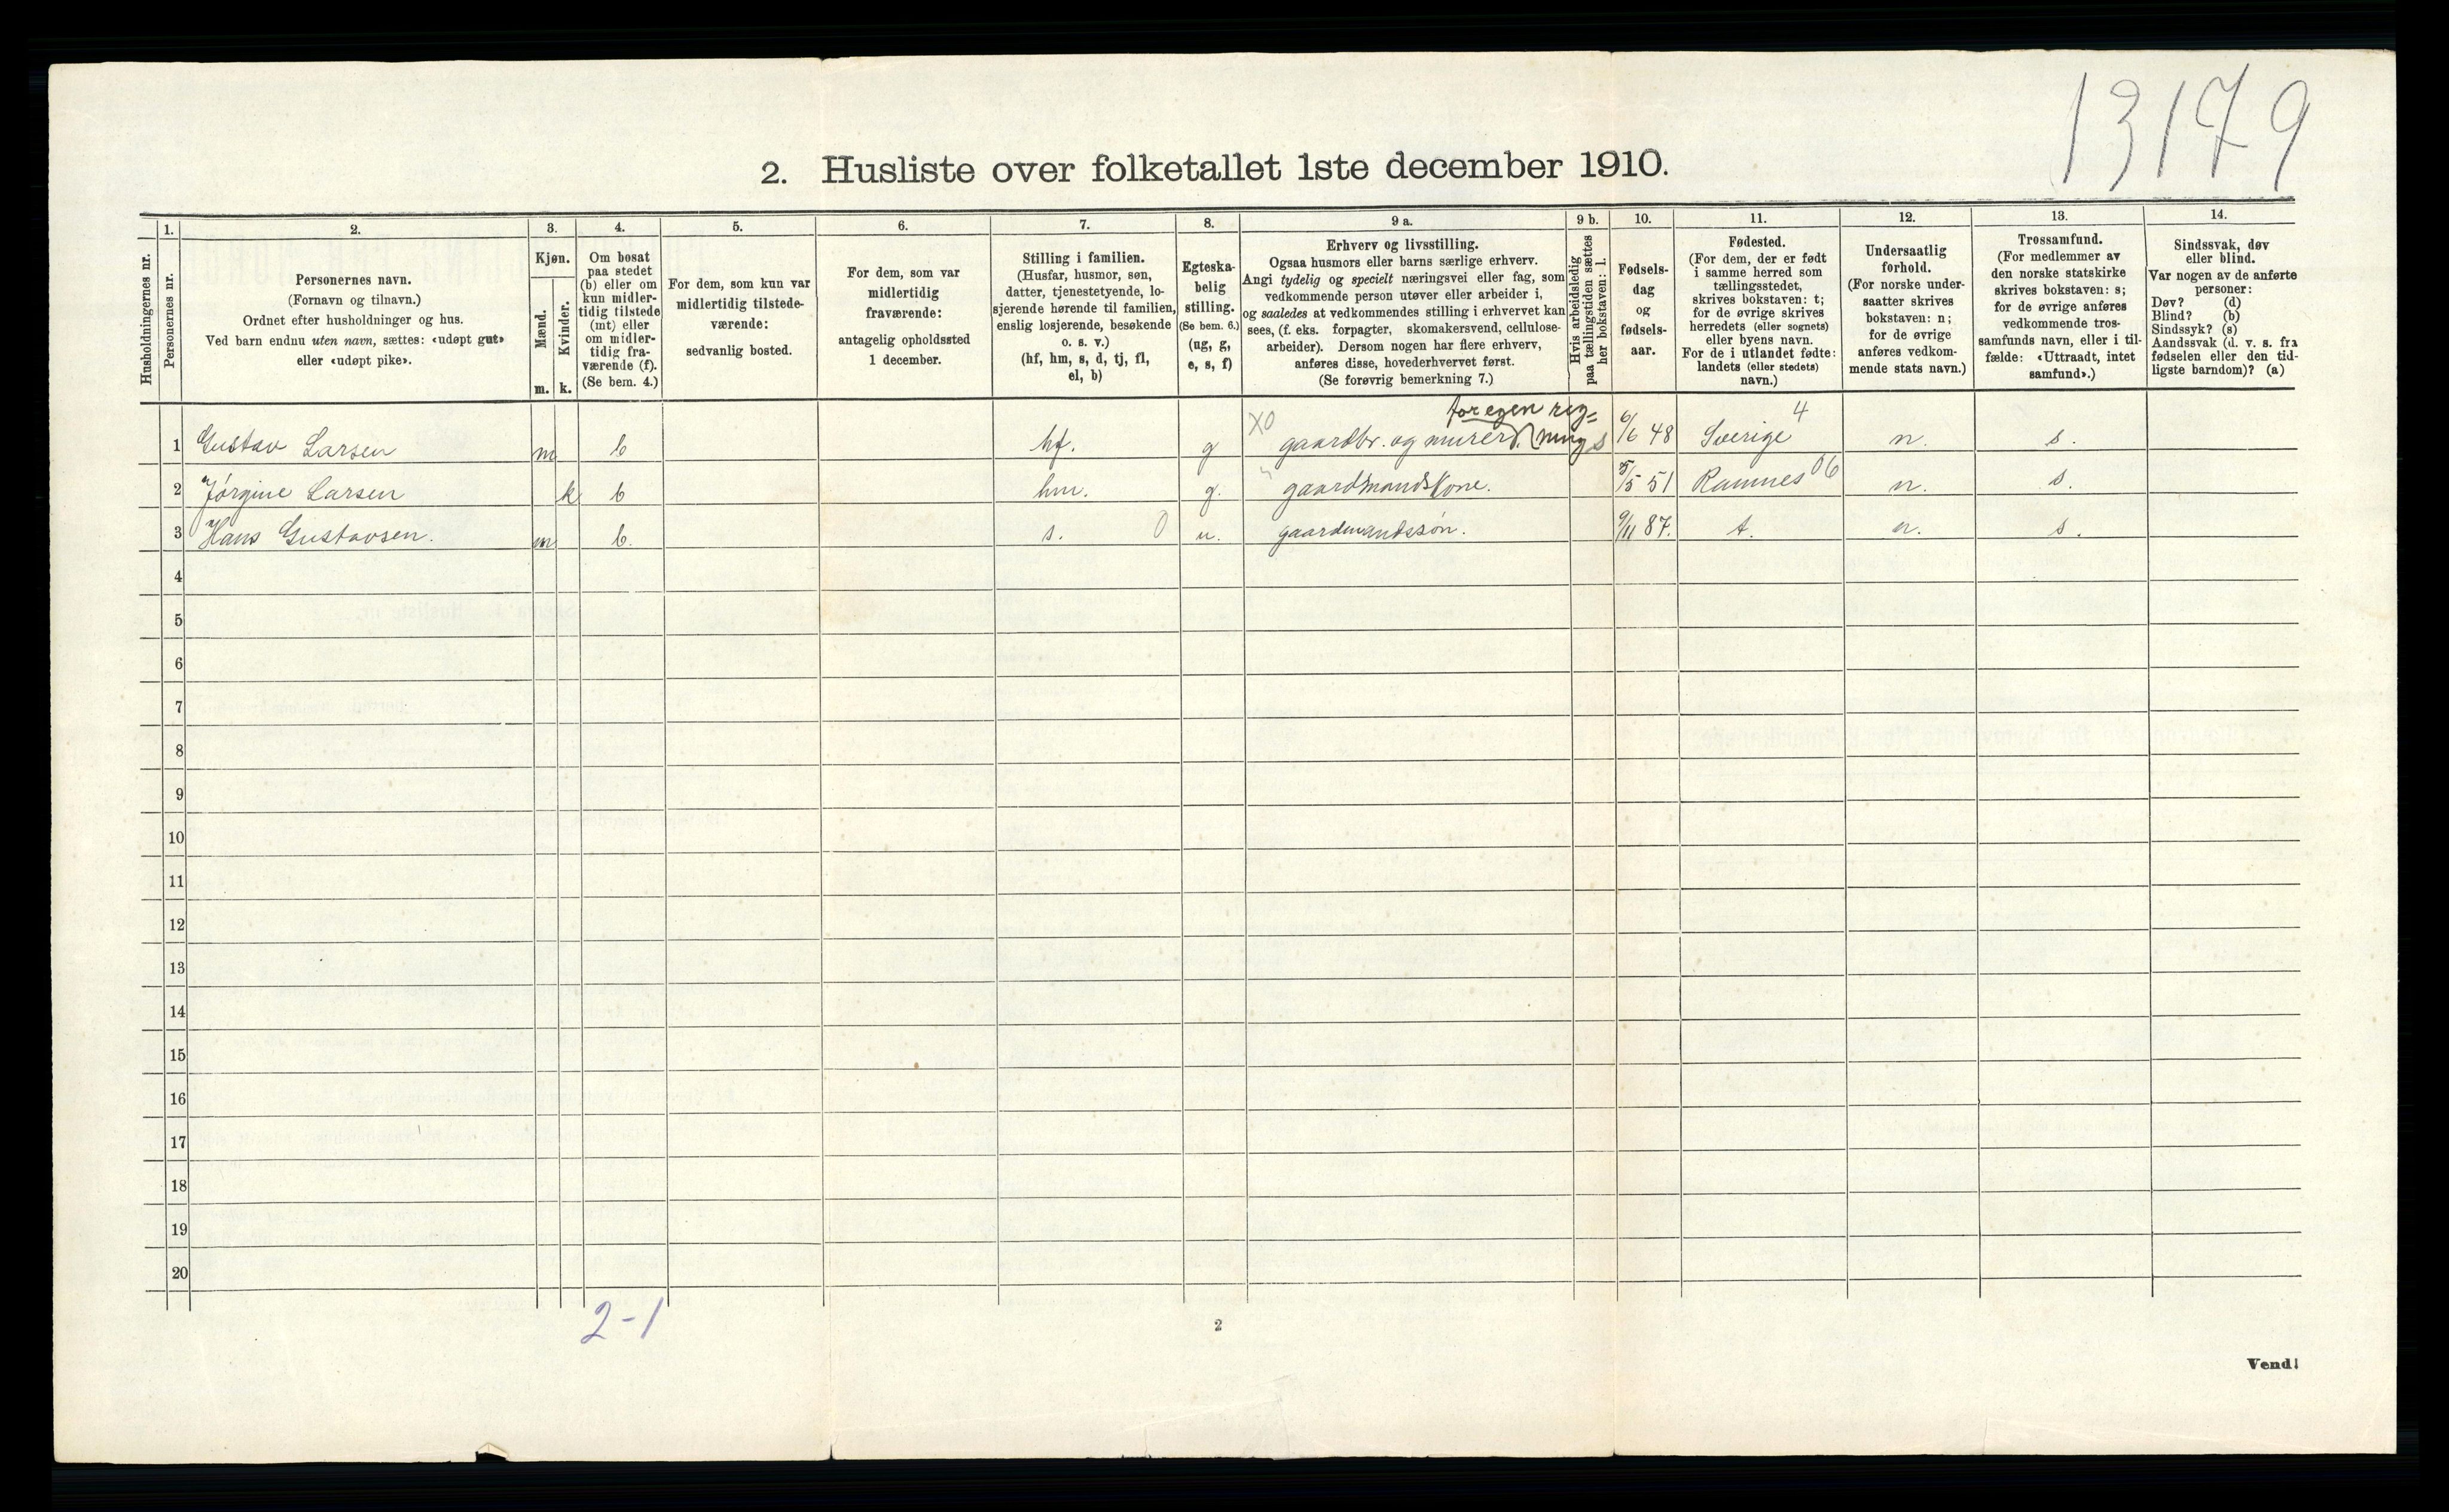 13179
2. Husliste over folketallet 1ste december 1910.
Husholdningernes nr.
1.
Personernes nr.
2.
Personernes navn.
(Fornavn og tilnavn.)
Ordnet efter husholdninger og hus.
Ved barn endnu uten navn, sættes: «udøpt gut»
eller «udøpt pike».
3.
Kjøn.
Mænd.
Kvinder.
m. k.
4.
Om bosat
paa stedet
(b) eller om
kun midler-
tidig tilstede
(mt) eller
om midler-
tidig fra-
værende (f).
(Se bem. 4.)
5.
For dem, som kun var
midlertidig tilstede-
værende:
sedvanlig bosted.
6.
For dem, som var
midlertidig
fraværende:
antagelig opholdssted
1 december.
7.
Stilling i familien.
(Husfar, husmor, søn,
datter, tjenestetyende, lo-
sjerende hørende til familien,
enslig losjerende, besøkende
o. s. v.)
(hf, hm, s, d, tj, fl,
el, b)
8.
Egteska-
belig
stilling.
(Se bem. 6.)
(ug, g,
e, s, f)
9 a.
Erhverv og livsstilling.
Ogsaa husmors eller barns særlige erhverv.
Angi tydelig og specielt næringsvei eller fag, som
vedkommende person utøver eller arbeider i,
og saaledes at vedkommendes stilling i erhvervet kan
sees, (f. eks. forpagter, skomakersvend, cellulose-
arbeider). Dersom nogen har flere erhverv,
anføres disse, hovederhvervet først.
(Se forøvrig bemerkning 7.)
9 b.
Hvis arbeidsledig
paa tællingstiden sættes
her bokstaven: l.
10.
Fødsels-
dag
og
fødsels-
aar.
11.
Fødested.
(For dem, der er født
i samme herred som
tællingsstedet,
skrives bokstaven: t;
for de øvrige skrives
herredets (eller sognets)
eller byens navn.
For de i utlandet fødte:
landets (eller stedets)
navn.)
12.
Undersaatlig
forhold.
(For norske under-
saatter skrives
bokstaven: n;
for de øvrige
anføres vedkom-
mende stats navn.)
13.
Trossamfund.
(For medlemmer av
den norske statskirke
skrives bokstaven: s;
for de øvrige anføres
vedkommende tros-
samfunds navn, eller i til-
fælde: «Uttraadt, intet
samfund».)
14.
Sindssvak, døv
eller blind.
Var nogen av de anførte
personer:
Døv? (d)
Blind? (b)
Sindssyk? (s)
Aandssvak (d. v. s. fra
fødselen eller den tid-
ligste barndom)? (a)
for egen reg= 4
1 Gustav Larsen m b hf. g X0 gaardbr. og murer. ning s 6/6 48 Sverige n. s.
2 Jörgine Larsen k b hm. g. gaardmandskone. 5/5 51 Ramnes 06 n. s.
3 Hans Gustavsen. m b. s. 0 u. gaardmandssön. 9/11 87. t. n. s.
4
5
6
7
8
9
10
11
12
13
14
15
16
17
18
19
20
2-1
2
Vend!